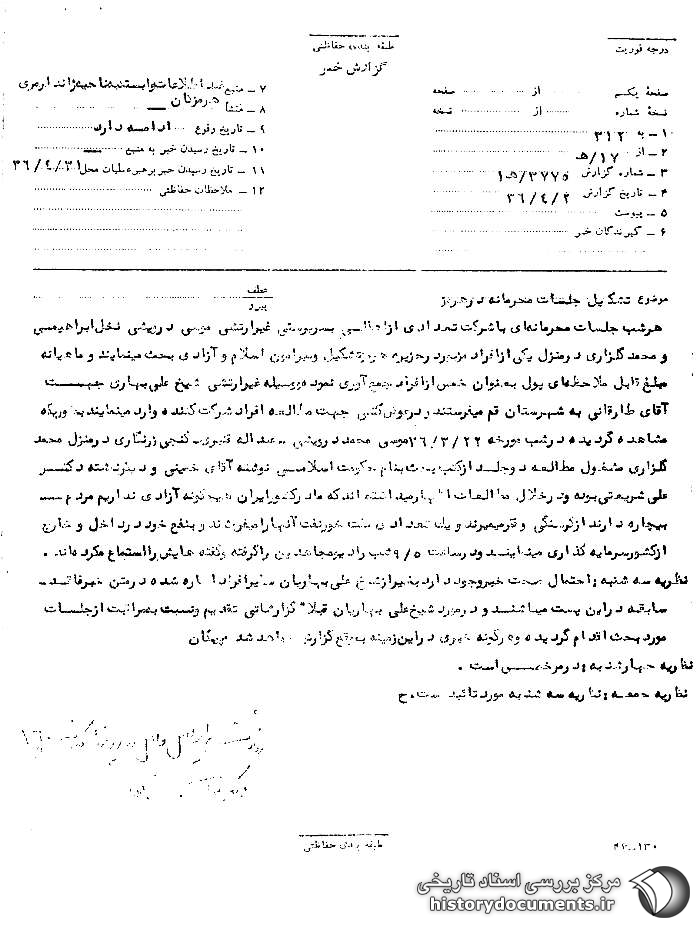 طبقه بندی حفاظتی
درجه فوریت
گزارش خبر
صفحهٔ یکم از صفحه
نسخهٔ شماره از نسخه
۱ – به ۳۱۲
۲ – از ۱۷/ﻫ
۳ – شماره گزارش ۳۷۷۵/ﻫ۱
۴ – تاریخ گزارش ۳۶/۴/۲
۵ – پیوست
۶ – گیرندگان خبر
۷ – منبع ضد اطلاعات وابسته بناحیه ژاندارمری هرمزگان
۸ – منشأ
۹ – تاریخ وقوع ادامه دارد
۱۰ – تاریخ رسیدن خبر به منبع
۱۱ – تاریخ رسیدن خبر برهبر عملیات محل ۳۶/۴/۳۱
۱۲ – ملاحظات حفاظتی
موضوع تشکیل جلسات محرمانه در هرمز
عطف
پیرو
هر شب جلسات محرمانه‌ای با شرکت تعدادی از اهالی بسرپرستی غیرارتشی موسی درویشی نخل ابراهیمی
و محمد گلزاری در منزل یکی از افراد مزبور در جزیره هرمز تشکیل و پیرامون اسلام و آزادی بحث مینمایند و ماهیانه
مبلغ قابل ملاحظه‌ای پول بعنوان خمس از افراد جمع آوری نموده و بوسیله غیرارتشی شیخ علی بهاری جهت
آقای طارقانی به شهرستان قم میفرستند و در عوض کتبی جهت مطالعه افراد شرکت کننده وارد مینمایند بطوریکه
مشاهده گردیده در شب مورخه ۳۶/۳/۲۲ موسی محمد درویشی عبداله قنبری گنجی زرنگاری در منزل محمد
گلزاری مشغول مطالعه دو جلد از کتب بحث بنام حکومت اسلامی نوشته آقای خمینی و دیگر نوشته دکتر
علی شریعتی بوده و در خلال مطالعات اظهار میداشته اند که ما در کشور ایران هیچگونه آزادی نداریم مردم
بیچاره دارند از گرسنگی و فقر میمیرند و یک تعدادی ملت خور نفت آنها را میفروشند و بنفع خود در داخل و خارج
از کشور سرمایه گذاری مینمایند و در ساعت ۹/۵ شب رادیو مجاهدین را گرفته و گفته هایش را استماع میکرده‌اند .
نظریه سه شنبه : احتمال صحت خبر وجود دارد بغیر از شیخ علی بهاریان سایر افراد اشاره شده در متن خبر فاقد
سابقه در این پست میباشند و در مورد شیخ علی بهاریان قبلا" گزارشاتی تقدیم و نسبت بمراقبت از جلسات
مورد بحث اقدام گردیده و هرگونه خبری در این زمینه بموقع گزارش خواهد شد
نظریه چهارشنبه : در مرخصی است .
نظریه جمعه : نظریه سه شنبه مورد تائید است . ح
طبقه بندی حفاظتی
مرکز بررسی اسناد تاریخی
historydocuments.ir